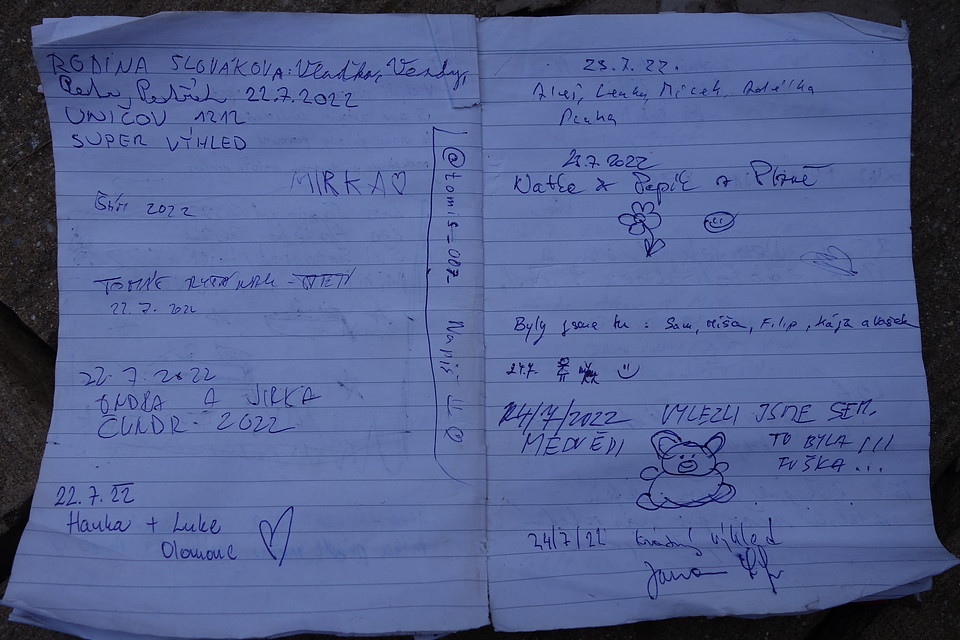 RODINA SLOVÁKOVA: Vlaďka, Vendy,
Petr, 22.7.2022
UNIČOV 1212
SUPER VÝHLED
MIRKA♡
2022
22. 7. 2022
22. 7. 2022
ONDRA A JIRKA
ČUNDR 2022
22. 7. 22
Hanka + Luke
Olomouc
@tomis_007_ Napiš
23. 7. 22.
Lenka,
Praha
23.7.2022
Pepík z Plzně
Byly jsme tu : Sam, Míša, Filip, Kája a Vašek
24.7.
24/7/2022 VYLEZLI JSME SEM.
MEDVĚDI TO BYLA !!!
FUŠKA...
24/7/22 krásný výhled
Jana